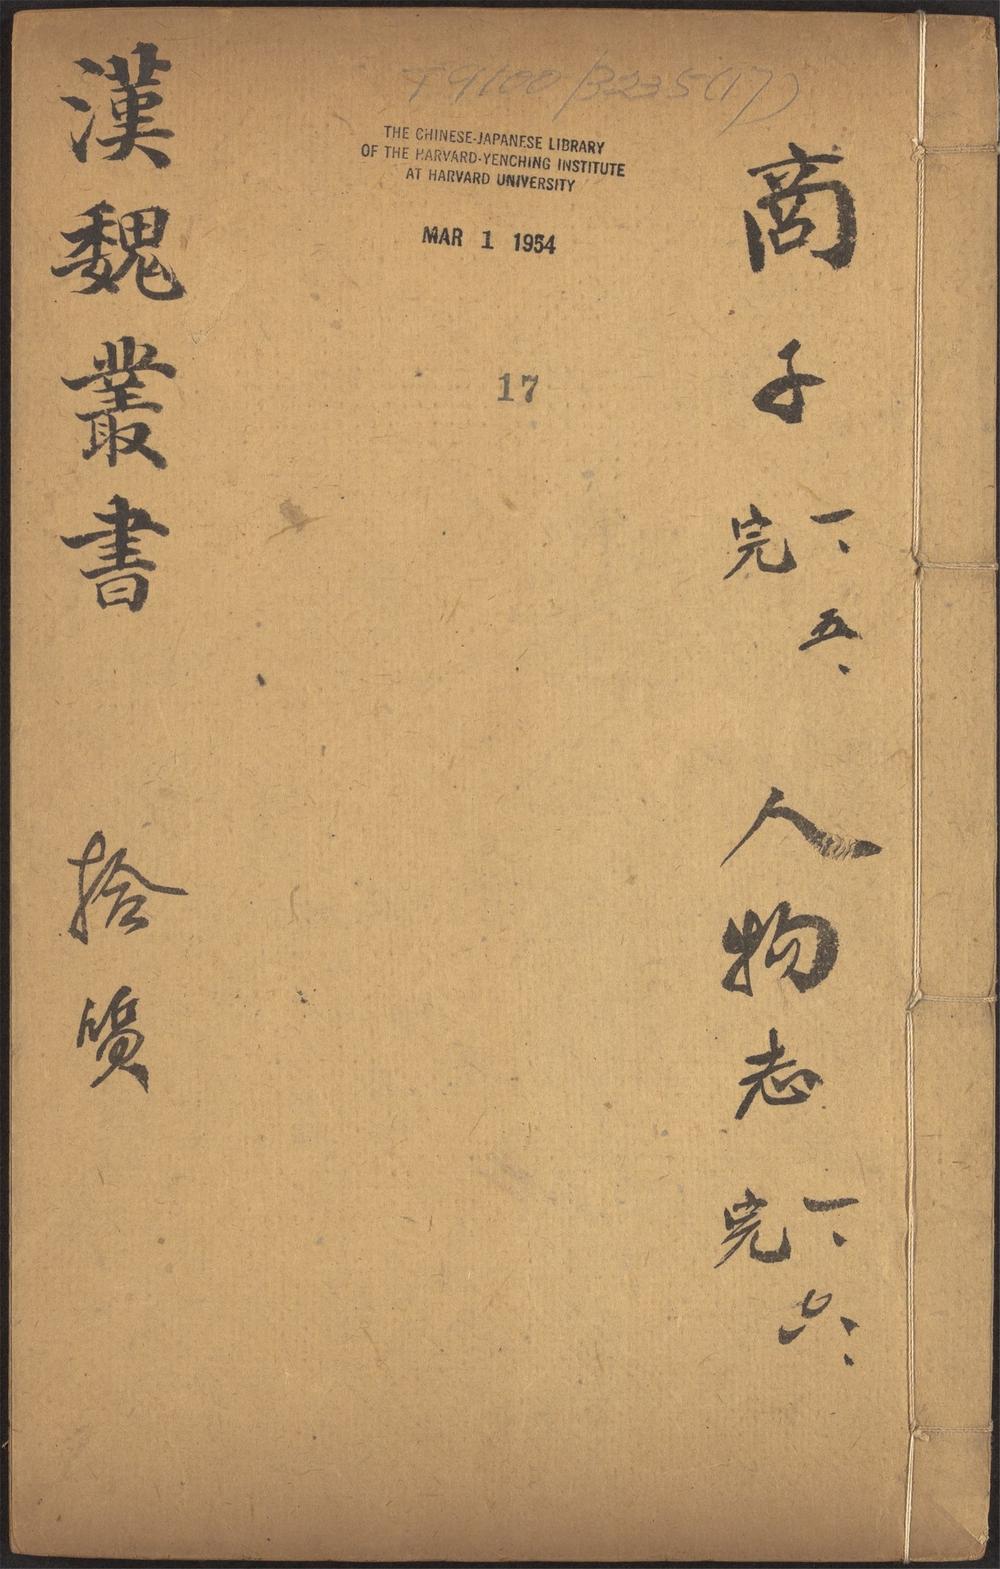 T9100/3235(17)
THE CHINESE-JAPANESE LIBRARY
OF THE HARVARD-YENCHING INSTITUTE
AT HARVARD UNIVERSITY
MAR 1 1954
17
商子
一、五、
完
人物志
一、六、
完
漢魏叢書 拾質